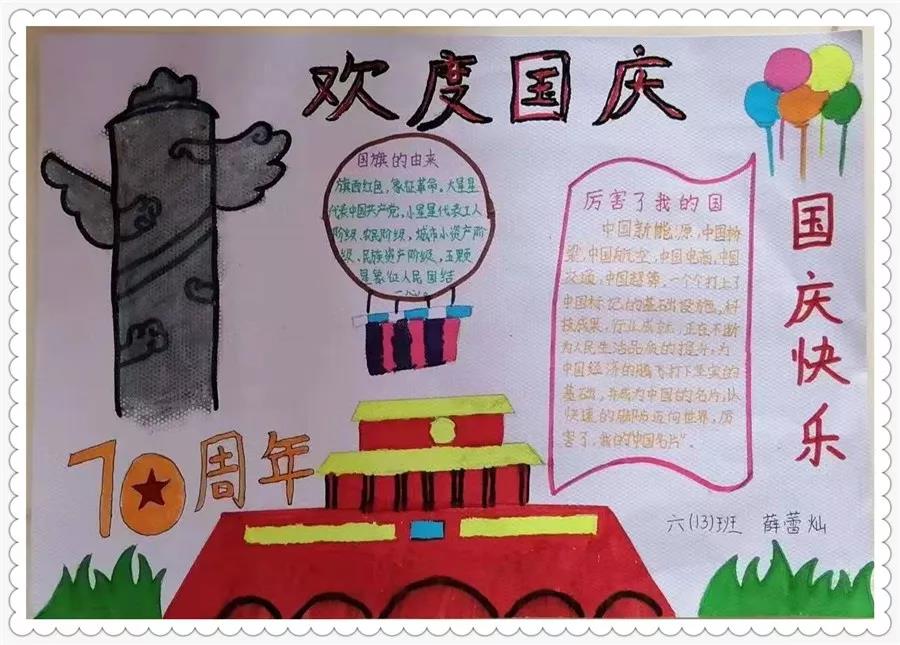 欢度国庆
国旗的由来
旗面红色,象征革命。大星星
代表中国共产党,小星星代表工人
阶级、农民阶级,城市小资产阶
级、民族资产阶级,五颗
星象征人民团结
厉害了我的国
中国新能源,中国桥
梁,中国航空,中国电商,中国
交通,中国超算,一个个打上了
中国标记的基础设施,科
技成果,行业成就,正在不断
为人民生活品质的提升,为
中国经济的腾飞打下坚实的
基础,并成为中国的名片,以
快速的脚步迈向世界,厉
害了,我的"中国名片".
国庆快乐
70周年
六(13)班 薛蕾灿